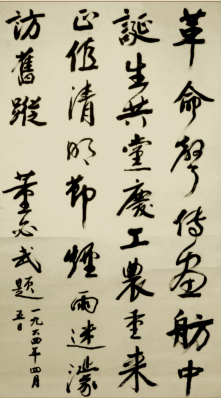 革命聲傳畫舫中
誕生共黨慶工農重来
正值清明節煙雨迷濛
訪舊蹤
董必武題
一九六四年四月
五日